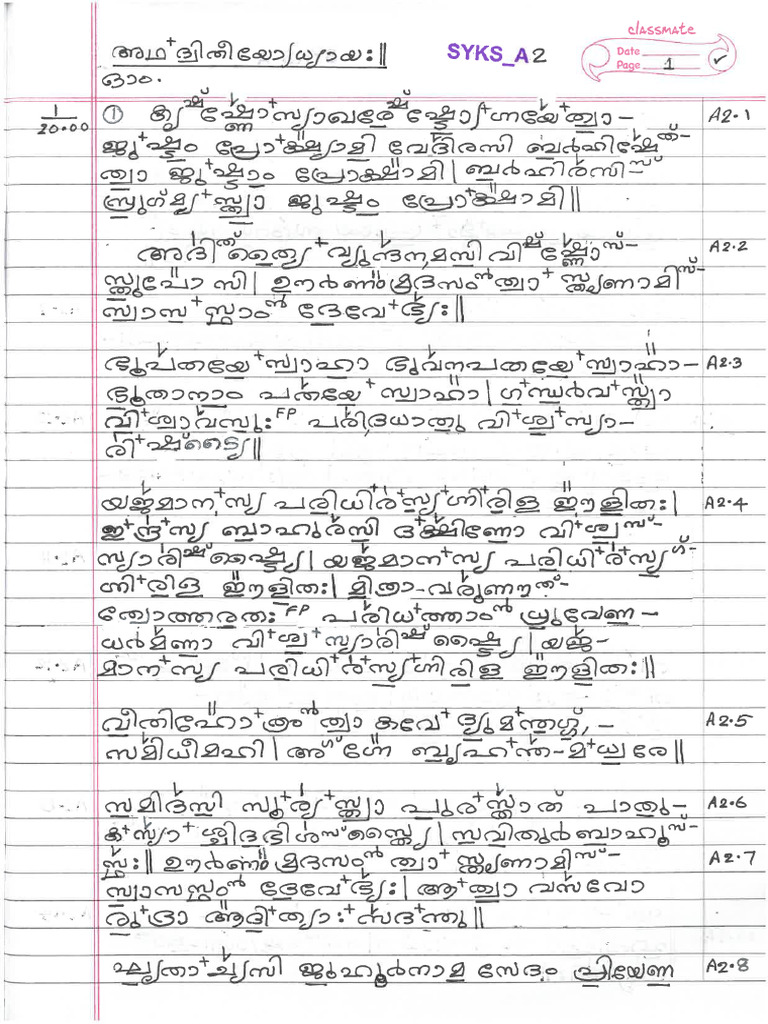 classmate
Date
Page 1
അഥ ദ്വിതീയോഽധ്യായഃ||
SYKS_A2
ഓം.
1
20.00
① കൃഷ്ണോസ്യാഖരേഷ്ഠോഽഗ്നയേത്വാ- A2.1
ജുഷ്ടം പ്രോക്ഷ്യാമി വേദിരസി ബർഹിഷേത്-
ത്വാ ജുഷ്ടാം പ്രോക്ഷാമി| ബർഹിരസിസ്
സ്രുഗ്ഭ്യസ്ത്വാ ജുഷ്ടം പ്രോക്ഷാമി||
അദിത്ത്യൈ വ്യുന്ദനമസി വിഷ്ണോസ്- A2.2
സ്തുപോ സി| ഊർണമ്രദസംത്വാ സ്തൃണാമിസ്-
സ്വാസസ്ഥാം ദേവേഭ്യഃ||
ഭൂപതയേസ്വാഹാ ഭുവനപതയേസ്വാഹാ- A2.3
ഭൂതാനാം പതയേ സ്വാഹാ| ഗന്ധർവസ്ത്വാ
വിശ്വാവസുഃ FP പരിദധാതു വിശ്വസ്യാ-
രിഷ്ട്യൈ||
യജമാനസ്യ പരിധിരസ്യഗ്നിരിള ഈളിതഃ| A2.4
ഇന്ദ്രസ്യ ബാഹുരസി ദക്ഷിണോ വിശ്വസ്-
സ്യാരിഷ്ട്യൈ| യജമാനസ്യ പരിധിരസ്യഗ്-
ഗ്നിരിള ഈളിതഃ| മിത്രാ-വരുണൗത്-
ത്വോത്തരതഃ FP പരിധത്താം ധ്രുവേണ-
ധർമണാ വിശ്വസ്യാരിഷ്ട്യൈ| യജ-
മാനസ്യ പരിധിരസ്യഗ്നിരിള ഈളിതഃ||
വീതിഹോത്രന്ത്വാ കവേ ദ്യുമന്തഗ്ഗ്, - A2.5
സമിധീമഹി| അഗ്നേ ബൃഹന്ത-മധ്വരേ||
സമിദസി സൂര്യസ്ത്വാ പുരസ്താത് പാതു- A2.6
കസ്യാശ്ചിദഭിശസ്ത്യൈ| സവിതുർബാഹൂസ്-
സ്ഥഃ|| ഊർണമ്രദസംത്വാ സ്തൃണാമിസ്- A2.7
സ്വാസസ്ഥം ദേവേഭ്യഃ| ആത്വാ വസവോ
രുദ്രാ ആദിത്യാഃ സദന്തു||
ഘൃതാച്യസി ജുഹൂർനാമ സേദം പ്രിയേണ A2.8